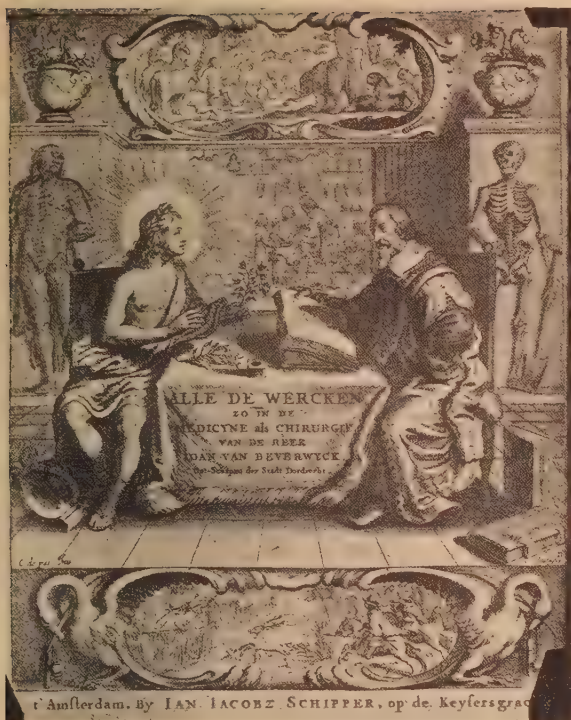 ALLE DE WERCKEN
ZO IN DE
MEDICYNE als CHIRURGIE
VAN DE HEER
IOAN VAN BEVERWYCK
Out-Schepen der Stadt Dordrecht.
t'Amsterdam. By IAN IACOBZ SCHIPPER, op de Keysersgrac